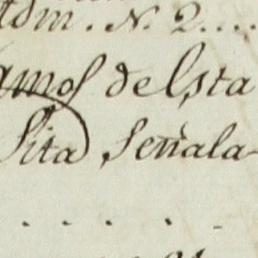 adm. N. 2....
amos de Esta
Sita Señala-